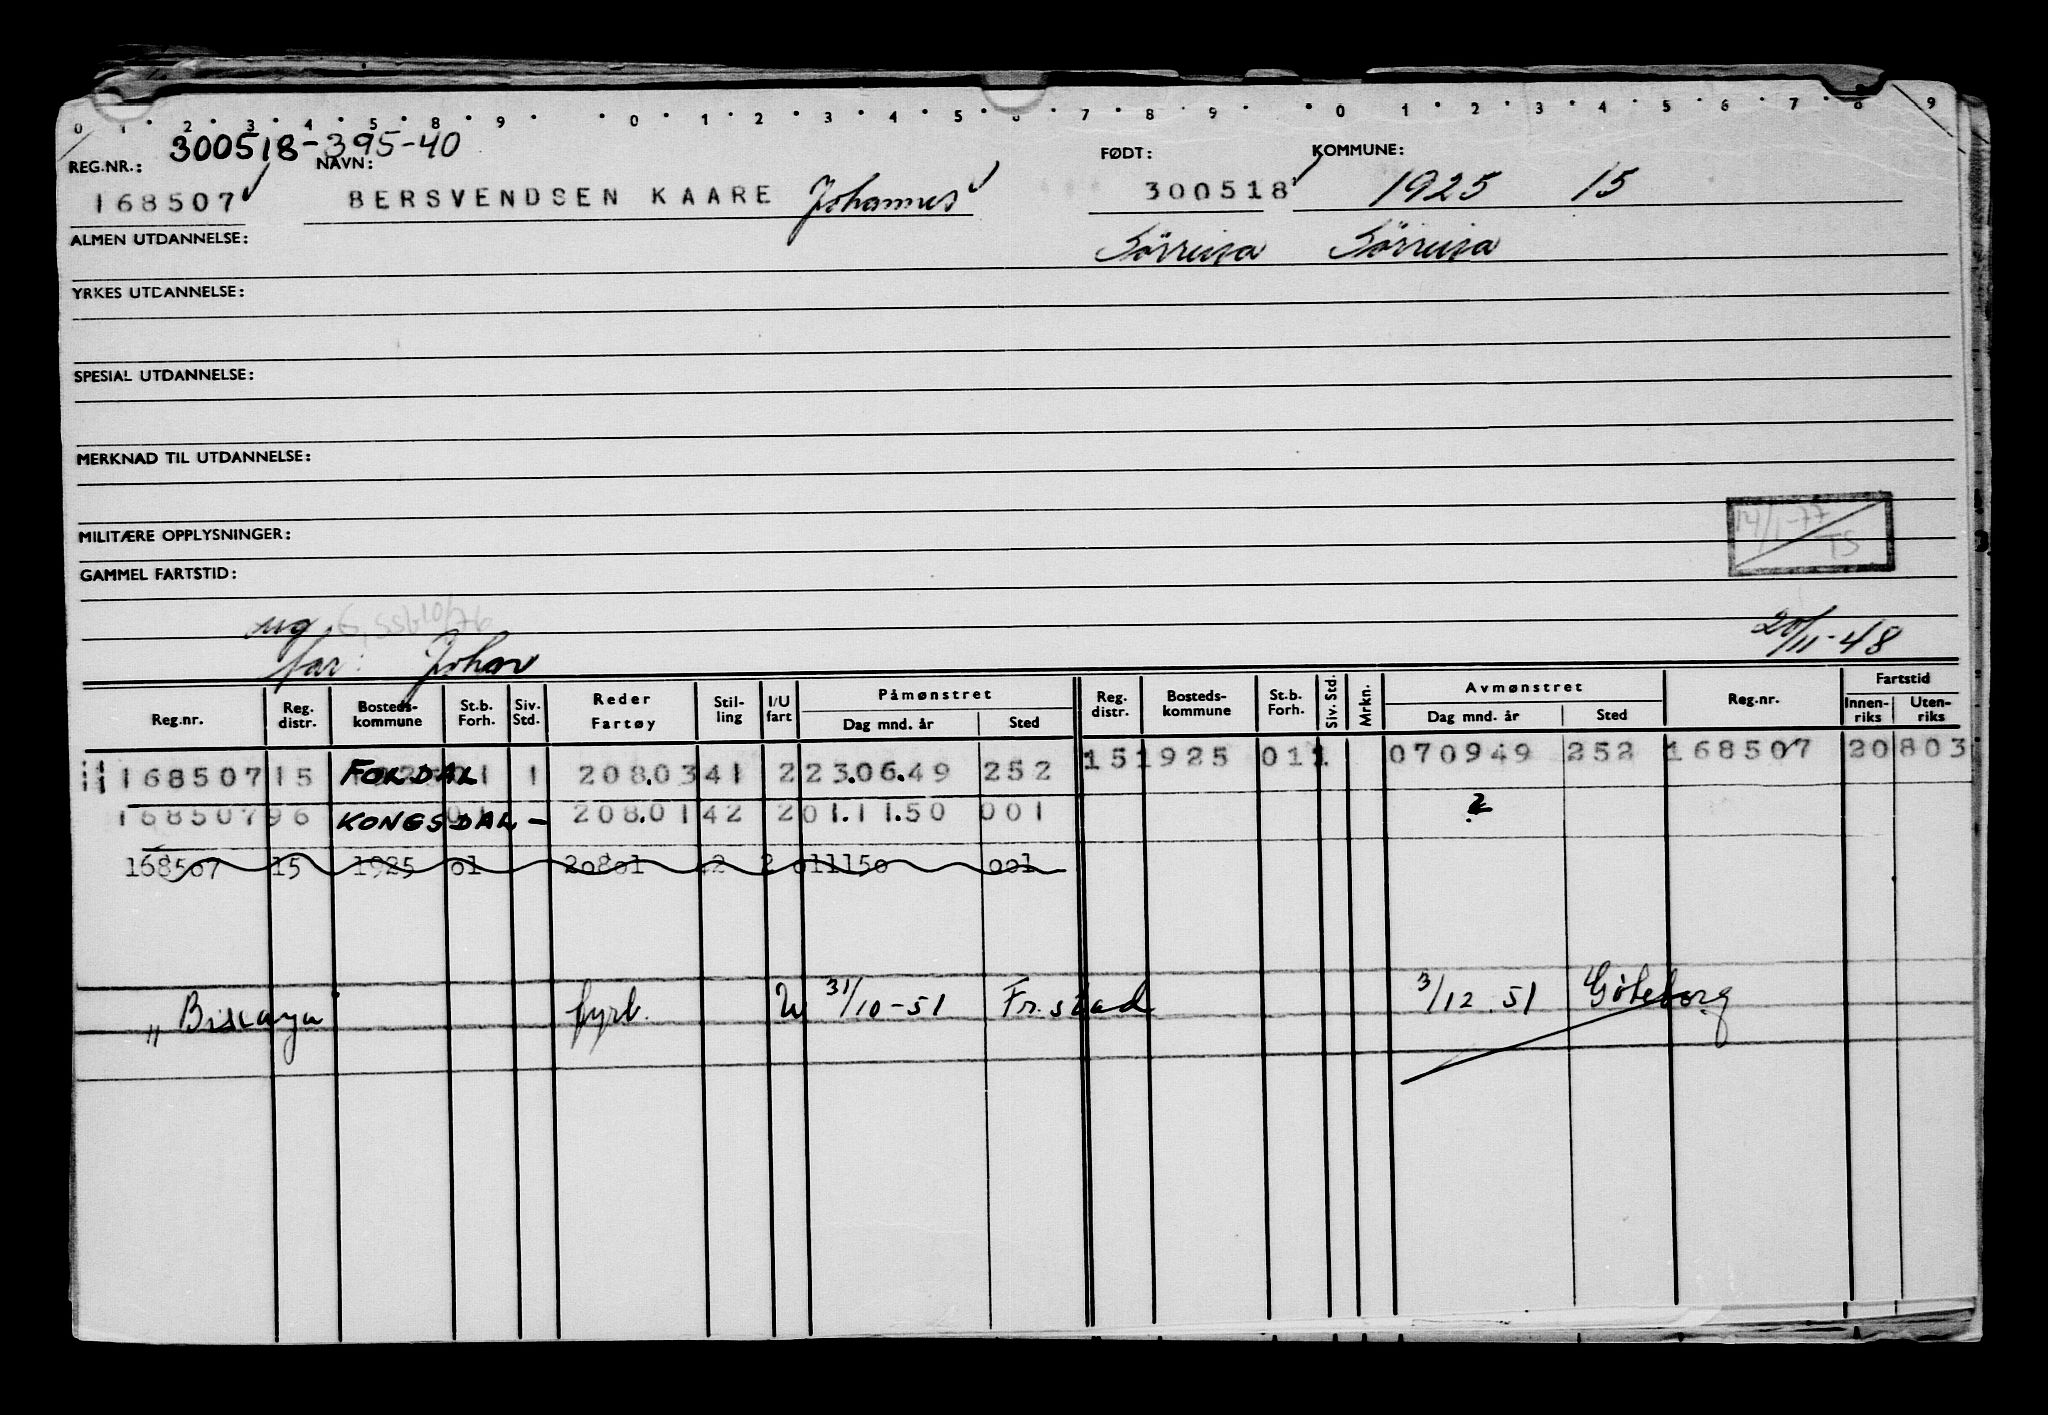 0 1 2 3 4 5 8 9 0 1 2 3 4 5 6 7 8 9 0 1 2 3 4 5 6 7 8 9
300518-395-40
REG.NR.: NAVN: FØDT: KOMMUNE:
168507 BERSVENDSEN KAARE Johannes 300518 1925 15
ALMEN UTDANNELSE: Sörreisa Sörreisa
YRKES UTDANNELSE:
SPESIAL UTDANNELSE:
MERKNAD TIL UTDANNELSE:
14/1-77
MILITÆRE OPPLYSNINGER: TS
GAMMEL FARTSTID:
ug. 20/11-48
far: Johan
Reg.nr. Reg. distr. Bosteds-kommune St.b. Forh. Siv. Std. Reder Fartøy Stil-ling I/U fart Påmønstret Dag mnd. år Sted Reg. distr. Bosteds-kommune St.b. Forh. Siv. Std. Mrkn. Avmønstret Dag mnd. år Sted Reg.nr. Fartstid Innen-riks Uten-riks
168507 15 FOLDAL 1 1 208.03 41 2 23.06.49 252 15 1925 01 1 070949 252 168507 20803
168507 96 KONGSDAL - 208.01 42 2 01.11.50 001 ?
168507 15 1925 01 20801 2 2 011150 001
" Biscaya fyrb. U 31/10-51 Fr.stad 3/12.51 Göteborg